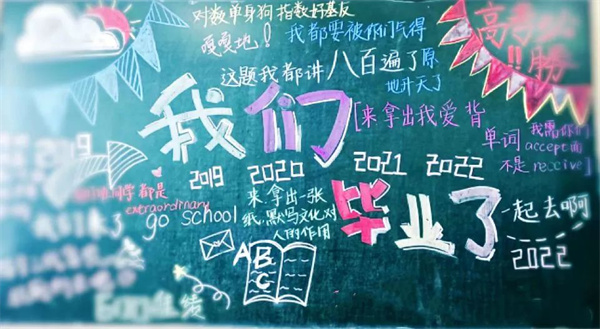 对数单身狗 指数好基友
嘎嘎地!
我都要被你们气得
原地升天了
这题我都讲八百遍了
高考必胜!!
我们
[来拿出我爱背
单词
我需你们
accept 而
不是 receive]
2019 2020 2021 2022
同学都是
extraordinary
go school
来,拿出一张
纸,默写文化对
人的作用
毕业了
一起去啊
2022
A B C